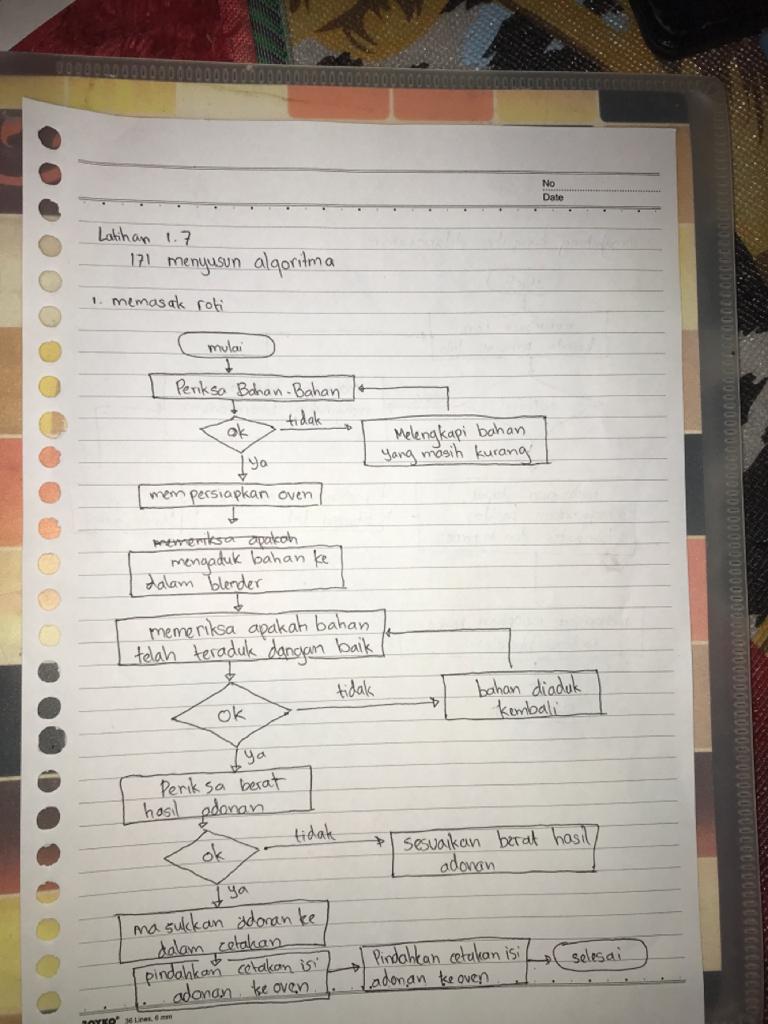 No
Date
Latihan 1.7
171 menyusun algoritma
1. memasak roti
mulai
Periksa Bahan-Bahan
ok
tidak
Melengkapi bahan
yang masih kurang
ya
mempersiapkan oven
memeriksa apakah
mengaduk bahan ke
dalam blender
memeriksa apakah bahan
telah teraduk dangan baik
ok
tidak
bahan diaduk
kembali
ya
Periksa berat
hasil adonan
ok
tidak
sesuaikan berat hasil
adonan
ya
masukkan adonan ke
dalam cetakan
pindahkan cetakan isi
adonan ke oven
Pindahkan cetakan isi
adonan ke oven
selesai
36 Lines, 6 mm